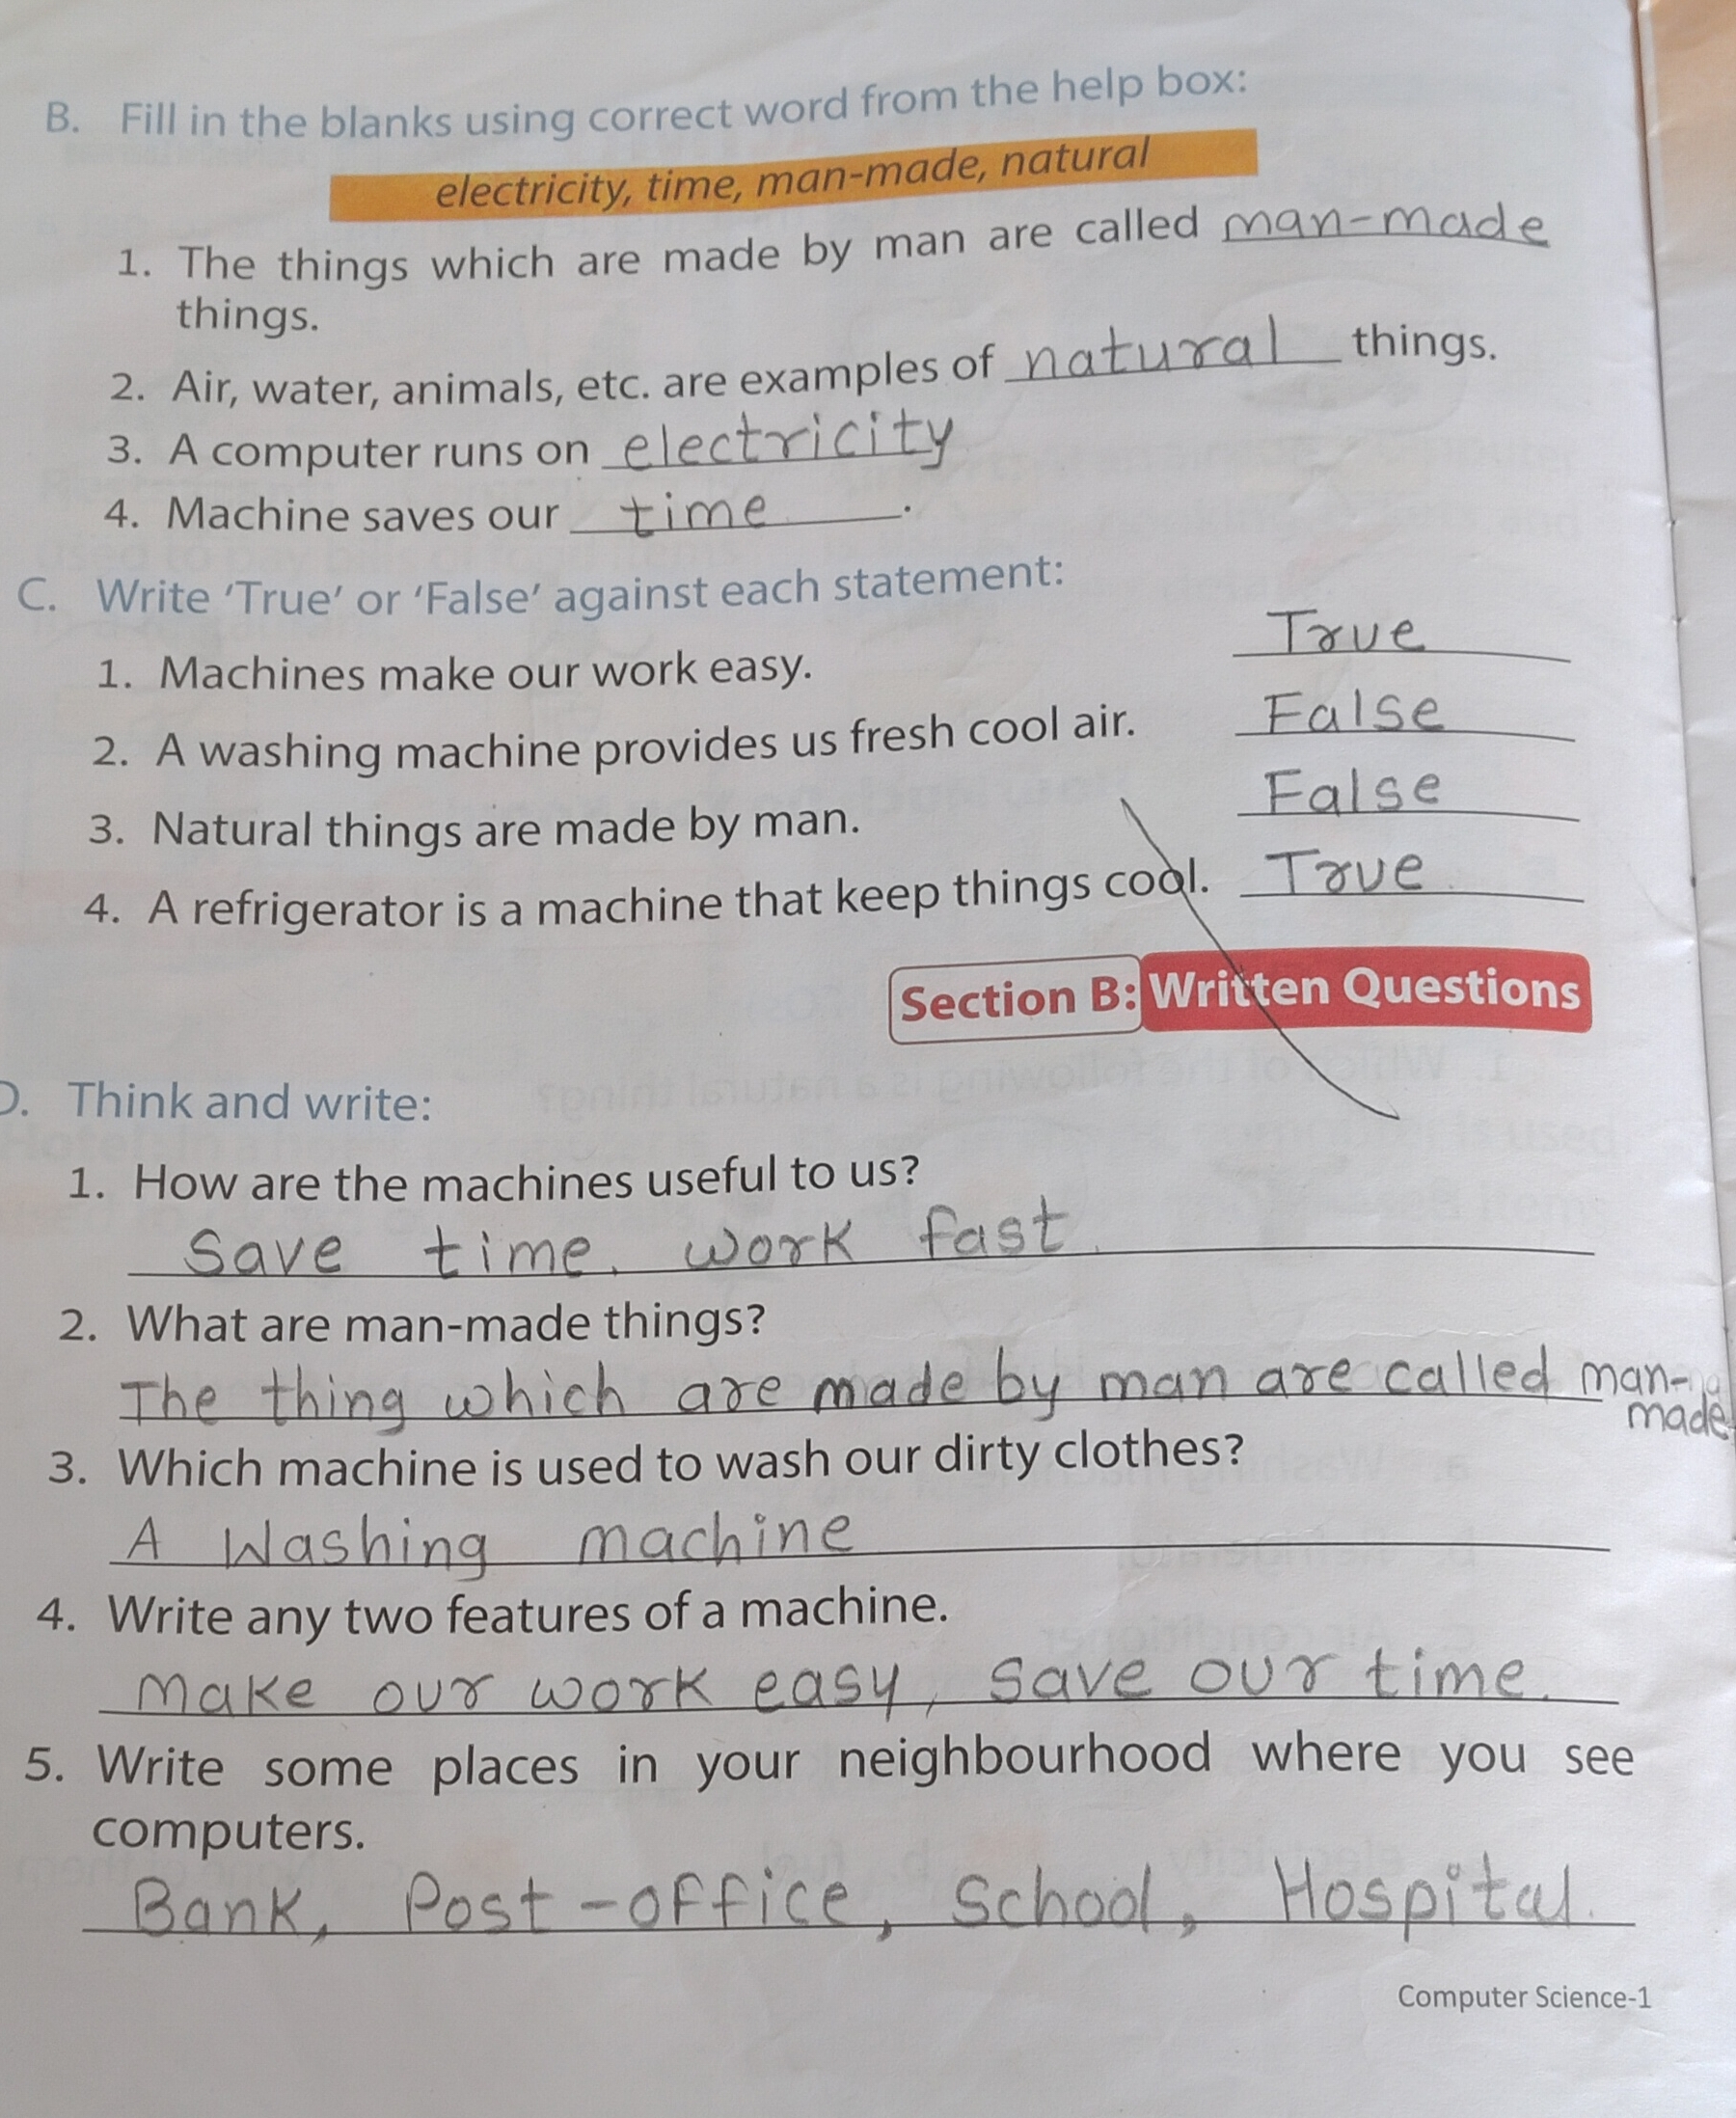 B. Fill in the blanks using correct word from the help box:
electricity, time, man-made, natural
1. The things which are made by man are called man-made
things.
2. Air, water, animals, etc. are examples of natural things.
3. A computer runs on electricity
4. Machine saves our time.
C. Write 'True' or 'False' against each statement:
1. Machines make our work easy. True
2. A washing machine provides us fresh cool air. False
3. Natural things are made by man. False
4. A refrigerator is a machine that keep things cool. True
Section B: Written Questions
D. Think and write:
1. How are the machines useful to us?
Save time. work fast.
2. What are man-made things?
The thing which are made by man are called man-
made
3. Which machine is used to wash our dirty clothes?
A Washing machine
4. Write any two features of a machine.
Make our work easy, save our time.
5. Write some places in your neighbourhood where you see
computers.
Bank, Post-office, School, Hospital.
Computer Science-1